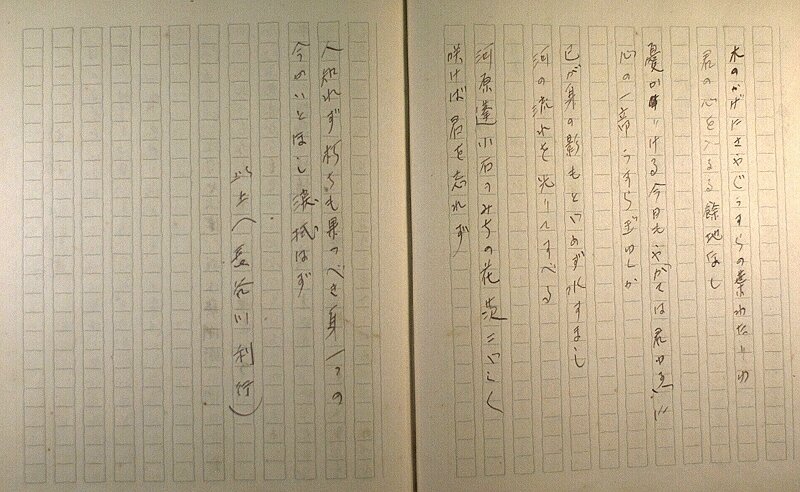 木のかげにさやぐうすらの
君の心を入るる餘地なし
憂かりける今日もやがては君が
心の一部うすらぎゆくか
己が身の影もとゞめず水すまし
河の流れを光りてすべる
河原蓬小石のみちの花茨
咲けば君を忘れず
人知れず朽ちも果つべき身一つの
今がいとほし涙拭はず
以上(長谷川利行)